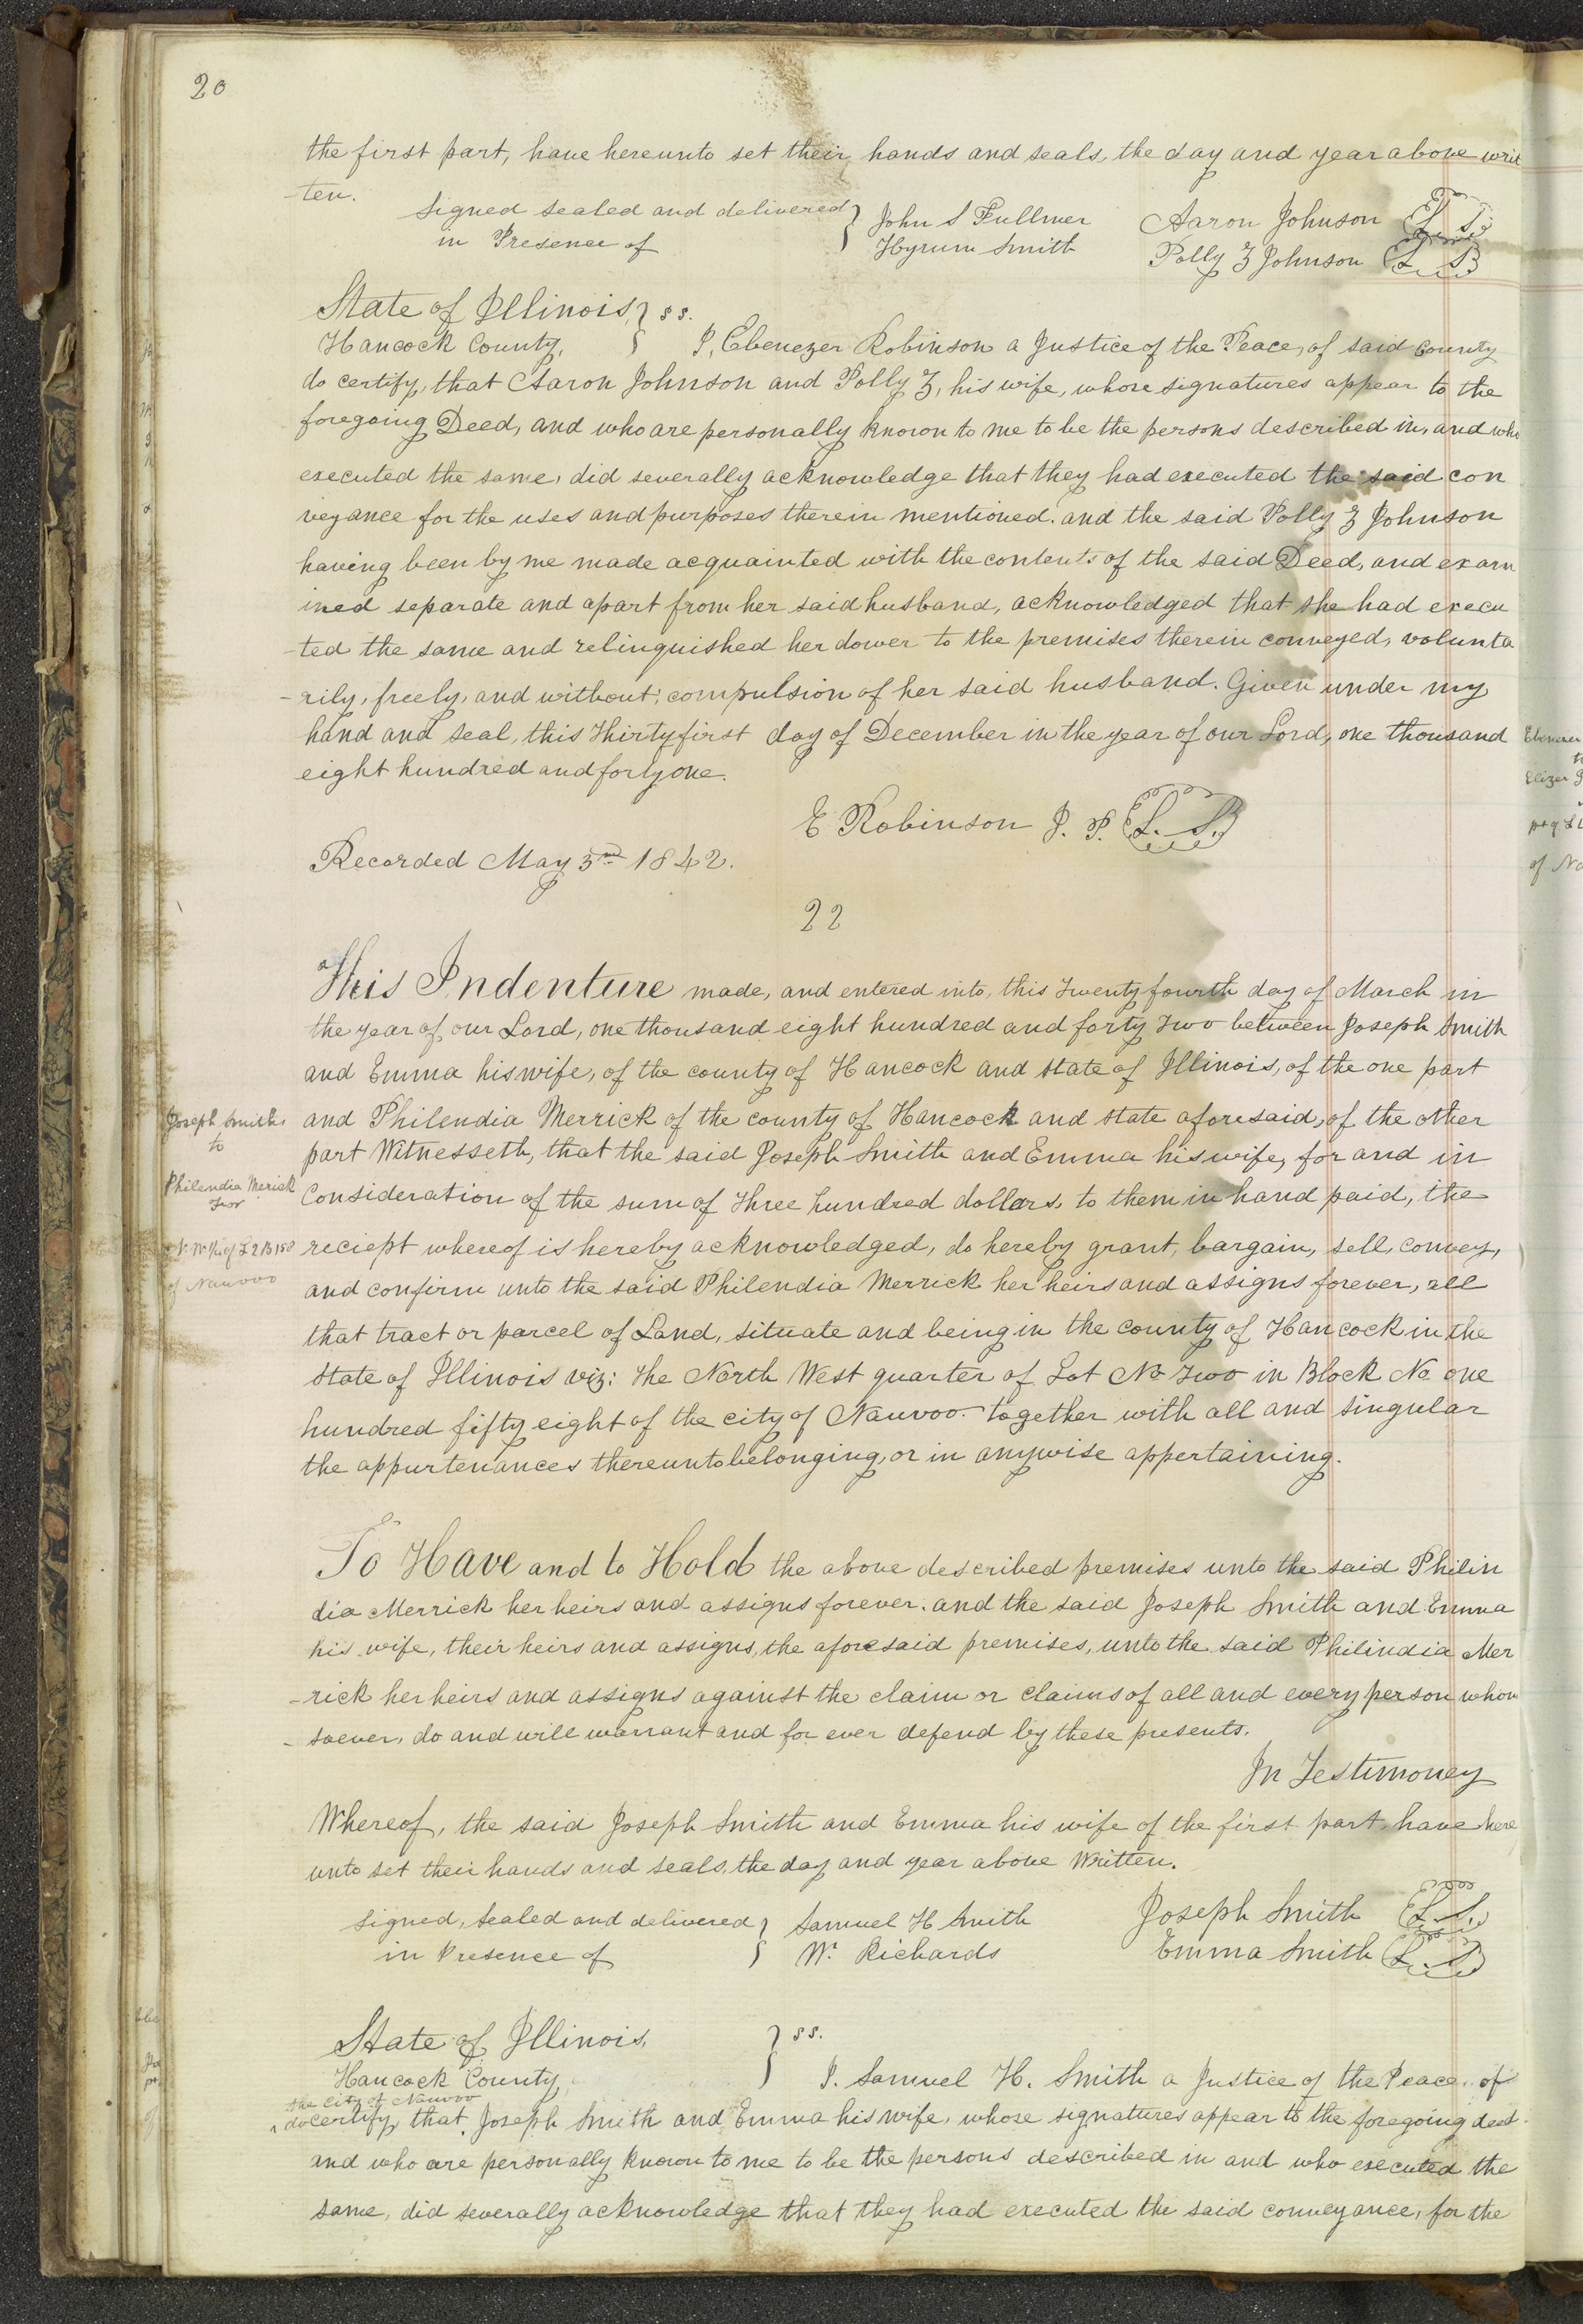 20
the first part, have hereunto set their hands and seals, the day and year above writ
-ten.
Signed sealed and delivered } John S Fullmer Aaron Johnson L. S.
in Presence of } Hyrum Smith Polly Z Johnson L. S.
State of Illinois, } ss.
Hancock County, } I, Ebenezer Robinson a Justice of the Peace, of said county
do certify, that Aaron Johnson and Polly Z, his wife, whose signatures appear to the
foregoing Deed, and who are personally known to me to be the persons described in, and who
executed the same, did severally acknowledge that they had executed the said con
veyance for the uses and purposes therein mentioned. and the said Polly Z Johnson
having been by me made acquainted with the contents of the said Deed, and exam
ined separate and apart from her said husband, acknowledged that she had execu
-ted the same and relinquished her dower to the premises therein conveyed, volunta
-rily, freely, and without, compulsion of her said husband. Given under my
hand and seal, this Thirty first day of December in the year of our Lord, one thousand
eight hundred and forty one.
E Robinson J. P. L. S.
Recorded May 3rd 1842.
22
This Indenture made, and entered into, this Twenty fourth day of March in
the year of our Lord, one thousand eight hundred and forty Two between Joseph Smith
and Emma his wife, of the county of Hancock and state of Illinois, of the one part
Joseph Smith,
to
Philendia Merick
N. W. ¼ of L 2 B 158
of Nauvoo
and Philendia Merrick of the county of Hancock and state aforesaid, of the other
part Witnesseth, that the said Joseph Smith and Emma his wife, for and in
Consideration of the sum of Three hundred dollars, to them in hand paid, the
reciept whereof is hereby acknowledged, do hereby grant, bargain, sell, convey,
and confirm unto the said Philendia Merrick her heirs and assigns forever, all
that tract or parcel of Land, situate and being in the county of Hancock in the
state of Illinois viz: The North West quarter of Lot No Two in Block No one
hundred fifty eight of the city of Nauvoo. together with all and singular
the appurtenances thereunto belonging, or in anywise appertaining.
To Have and to Hold the above described premises unto the said Philin
dia Merrick her heirs and assigns forever. and the said Joseph Smith and Emma
his wife, their heirs and assigns, the aforesaid premises, unto the said Philindia Mer
-rick her heirs and assigns against the claim or claims of all and every person whom
-soever, do and will warrant and for ever defend by these presents.
In Testimoney
Whereof, the said Joseph Smith and Emma his wife of the first part have here
unto set their hands and seals, the day and year above Written.
Signed, Sealed and delivered } Samuel H Smith Joseph Smith L. S.
in Presence of } W. Richards Emma Smith L. S.
State of Illinois, } ss.
Hancock County, } I. Samuel H. Smith a Justice of the Peace, of
the City of Nauvoo
do certify, that Joseph Smith and Emma his wife, whose signatures appear to the foregoing deed
and who are personally known to me to be the persons described in and who executed the
same, did severally acknowledge that they had executed the said conveyance, for the